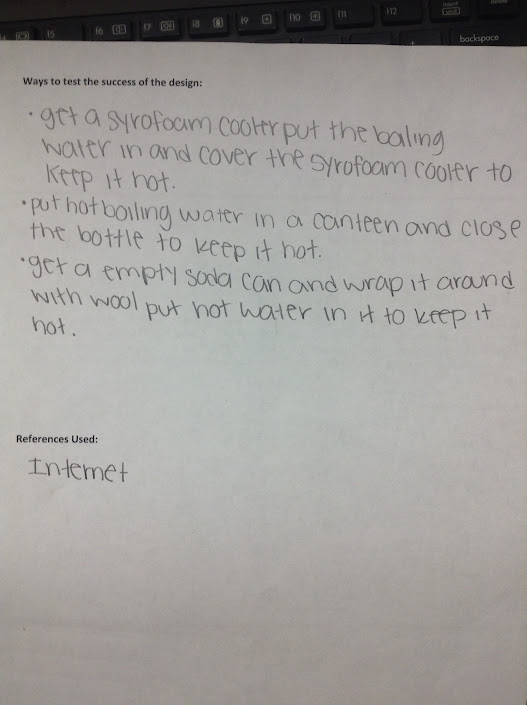 f5
f6
f7
f8
f9
f10
f11
f12
insert
backspace
Ways to test the success of the design:
• get a syrofoam cooler put the baling
water in and cover the syrofoam cooler to
keep it hot.
• put hot boiling water in a canteen and close
the bottle to keep it hot.
• get a empty soda can and wrap it around
with wool put hot water in it to keep it
hot.
References Used:
Internet